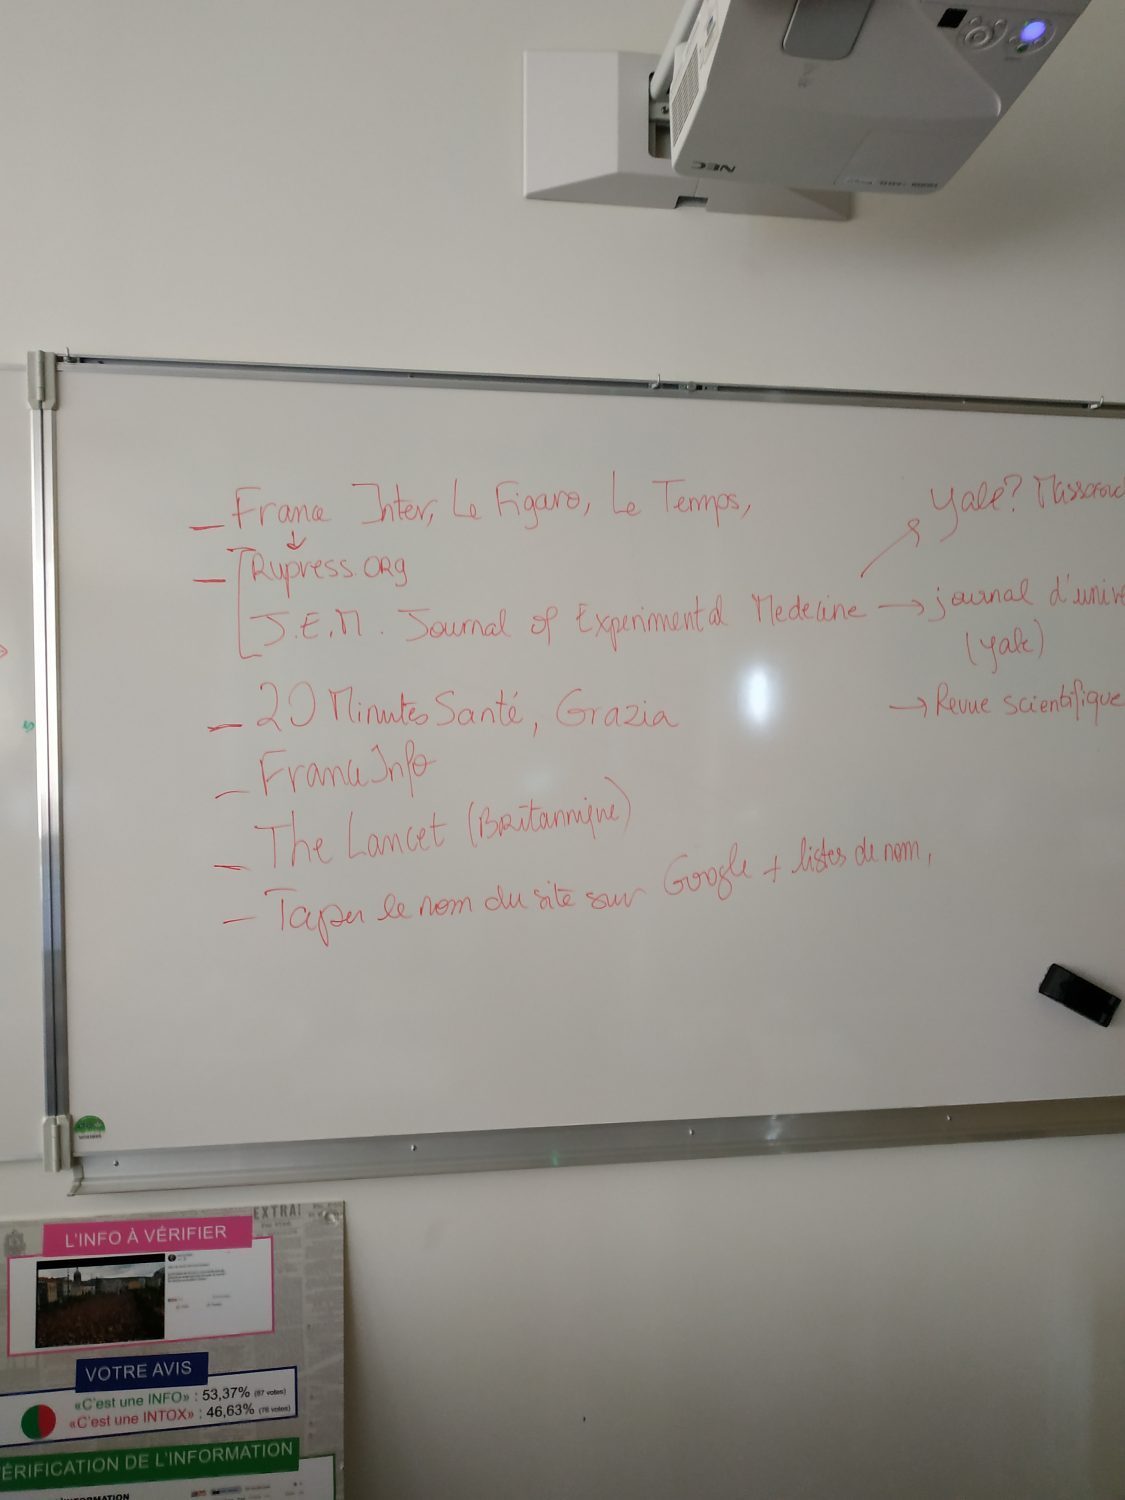 NEC
Yale?
– France Inter, Le Figaro, Le Temps,
– Rupress.org
J.E.M. Journal of Experimental Medecine → journal d'unive
(yale)
→ Revue scientifique
– 20 Minutes Santé, Grazia
– France Info
– The Lancet (Britannique)
– Taper le nom du site sur Google + listes de nom,
EXTRA!
L'INFO À VÉRIFIER
VOTRE AVIS
«C'est une INFO» : 53,37% (87 votes)
«C'est une INTOX» : 46,63% (76 votes)
ÉRIFICATION DE L'INFORMATION